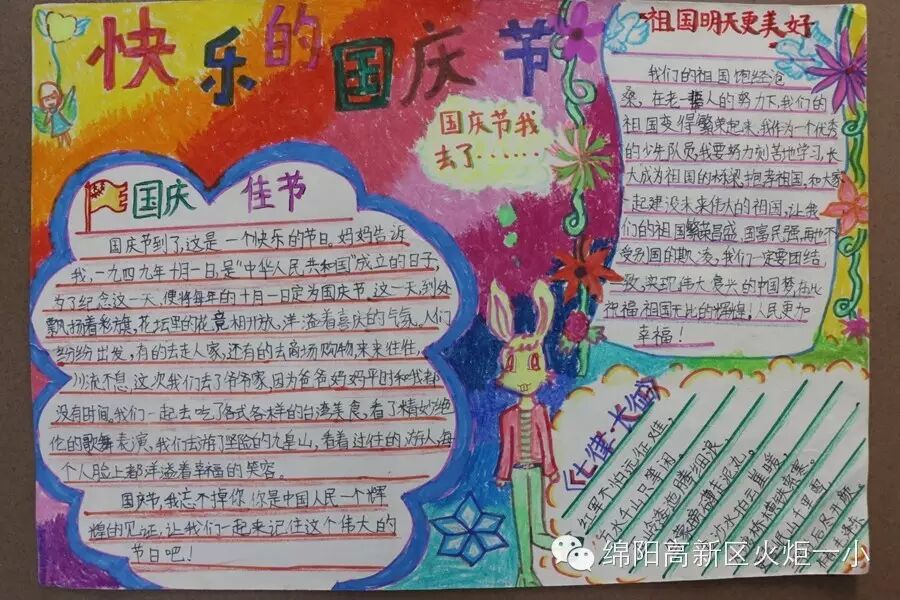 快乐的国庆节
国庆节我
去了……
国庆 佳节
国庆节到了,这是一个快乐的节日。妈妈告诉
我,一九四九年十月一日,是“中华人民共和国”成立的日子,
为了纪念这一天,便将每年的十月一日定为国庆节。这一天,到处
飘扬着彩旗,花坛里的花竟相开放。洋溢着喜庆的气氛。人们
纷纷出发,有的去走人家,还有的去商场购物,来来往往,
川流不息,这次我们去了爷爷家,因为爸爸妈妈平时和我都
没有时间。我们一起去吃了各式各样的台湾美食,看了精妙绝
伦的歌舞表演。我们去游了坚险的九皇山,看着过往的游人,每
个人脸上都洋溢着幸福的笑容。
国庆节,我忘不掉你,你是中国人民一个辉
煌的见证,让我们一起来记住这个伟大的
节日吧!
祖国明天更美好
我们的祖国饱经沧
桑,在老一辈人的努力下,我们的
祖国变得繁荣起来,我作为一个优秀
的少年队员,我要努力刻苦地学习,长
大成为祖国的栋梁,报孝祖国,和大家
一起建设未来伟大的祖国,让我
们的祖国繁荣昌盛,国富民强,再也不
受别国的欺凌,我们一定要团结一
致,实现伟大复兴的中国梦,在此
祝福祖国无比的辉煌,人民更加
幸福!
《七律·长征》
红军不怕远征难,
万水千山只等闲。
五岭逶迤腾细浪
乌蒙磅礴走泥丸。
金沙水拍云崖暖,
大渡桥横铁索寒。
更喜岷山千里雪
三军过后尽开颜。
绵阳高新区火炬一小